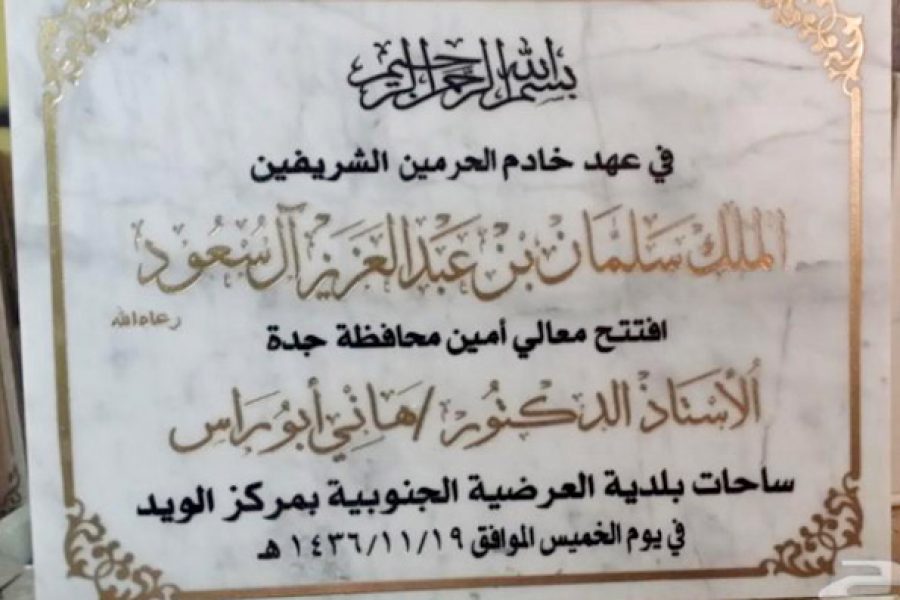 بسم الله الرحمن الرحيم
في عهد خادم الحرمين الشريفين
الملك سَلمَان بن عَبدالعَزيز آل سُعُود
رعاه الله
افتتح معالي أمين محافظة جدة
الأستاذ الدكتور / هَاني أبو رَاس
ساحات بلدية العرضية الجنوبية بمركز الويد
في يوم الخميس الموافق ١٤٣٦/١١/١٩ هـ